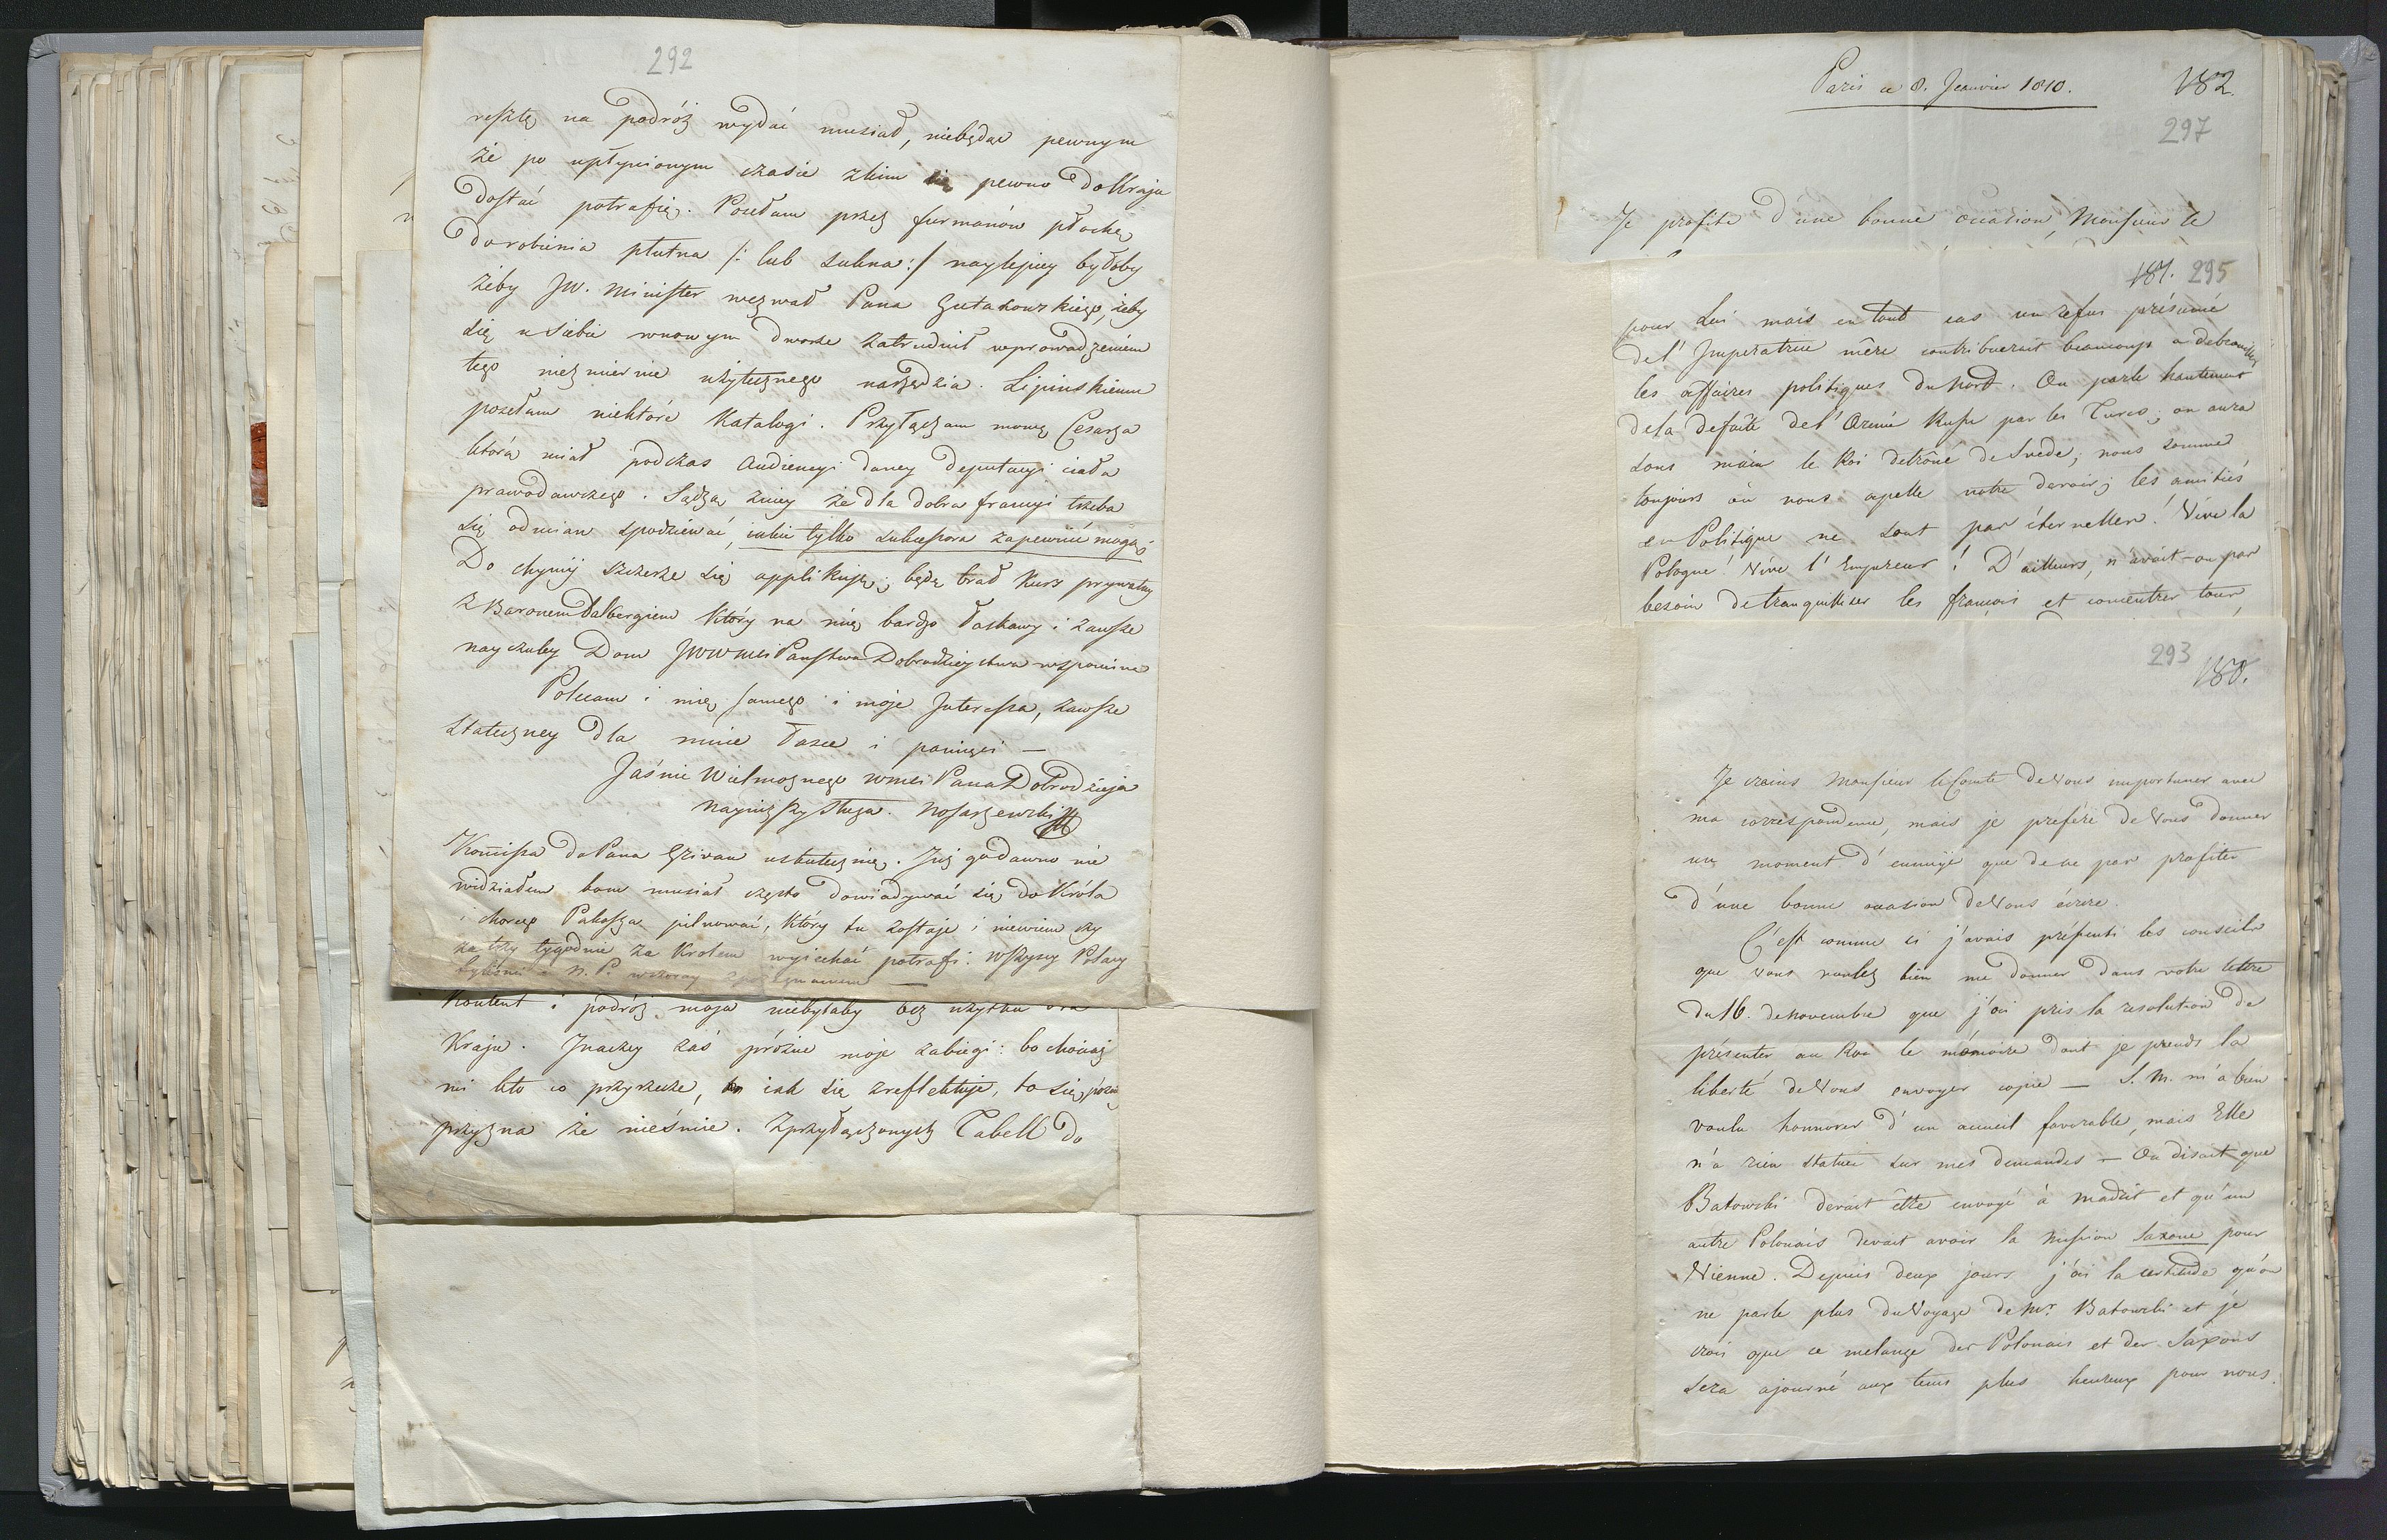 292
resztę na podróż wydać musiał, niebędąc pewnym
że po upłynionym czasie zkim się pewno do Kraju
dostać potrafię. Posełam przez furmanów płochę
do robienia płutna /: lub sukna :/ naylepiey byłoby
żeby JW. Minister wezwał Pana Gutakowskiego, żeby
się u siebie wnowym dworze zatrudnił wprowadzeniem
tego niezmiernie użytecznego narzędzia. Lipinskiemu
posełam niektóre Katalogi. Przyłączam mowę Cesarza
którą miał podczas Audiencyi daney deputacyi ciała
prawodawczego. Sądzą inney że dla dobra francyi trzeba
się odmian spodziewać, iakie tylko sukcessora zapewnić mogą
Do chymij szczerze się applikuję; będę brał kurs prywatny
z Baronem Dalbergiem który na mię bardzo łaskawy i zawsze
nayczuley Dom JWWmci Państwa Dobrodzieystwa wspomina
Polecam i mię samego i moje Interessa, zawsze
Stateczney dla mnie łasce i pamięci —
Jaśnie Wielmożnego WMci Pana Dobrodzieja
Nayniższy Sługa. Nosarzewski
Kommissa do Pana Grivau uskutecznię. Już go dawno nie
widziałem bom musiał często dowiadywać się do Króla
i chorego Pakosza pilnować, który tu zostaje i niewiem czy
za trzy tygodnie za Krolem wyiechać potrafi. Wszyscy Polacy
byliśmy u N. P. wczoray z pożegnaniem —
Kontent i podróż moja niebyłaby bez użytku dla
Kraju. Inaczey zaś próżne moje zabiegi: bo chociaż
mi kto co przyrzecze, iak się zreflektuje, to się późniey
przyzna że nieśmie. Z przyłączonych Tabell do
Paris ce 8. Jeanvier 1810.
182.
297
Je profite d'une bonne occasion, Monsieur le
181. 295
pour Lui mais en tout cas un refus présumé
de l'Imperatrice mère contribuerait beaucoup a debrouiller
les affaires politiques du Nord. On parle hautement
de la defaite de l'Armée Russe par les Turcs; on aura
sous main le Roi detrône de Suède; nous sommes
toujours où nous apelle notre devoir; les amitiés
en Politique ne sont pas éternelles! Vive la
Pologne! Vive l'Empereur! D'ailleurs, n'avait-on pas
besoin de tranquilliser les françois et concentrer tour
293
180.
Je crains Monsieur le Comte de Vous importuner avec
ma correspondence, mais je préfére de Vous donner
un moment d'ennuye que de ne pas profiter
d'une bonne occasion de Vous écrire.
C'est comme si j'avais préssenti les conseils
que vous voulez bien me donner dans votre lettre
du 16. de Novembre que j'ai pris la resolution de
présenter au Roi le mémoire dont je prends la
liberté de Vous envoyer copie — S. M. m'a bien
voulu honnorer d'un acceuil favorable, mais Elle
n'a rien statuée sur mes demandes — On disait que
Batowski devait être envoyé à Madrit et qu'un
autre Polonais devait avoir la mission Saxone pour
Vienne. Depuis deux jours j'ai la certitude qu'on
ne parle plus du Voyage de Mr. Batowski et je
crois que ce melange des Polonais et des Saxons
sera ajourné aux tems plus heureux pour nous.